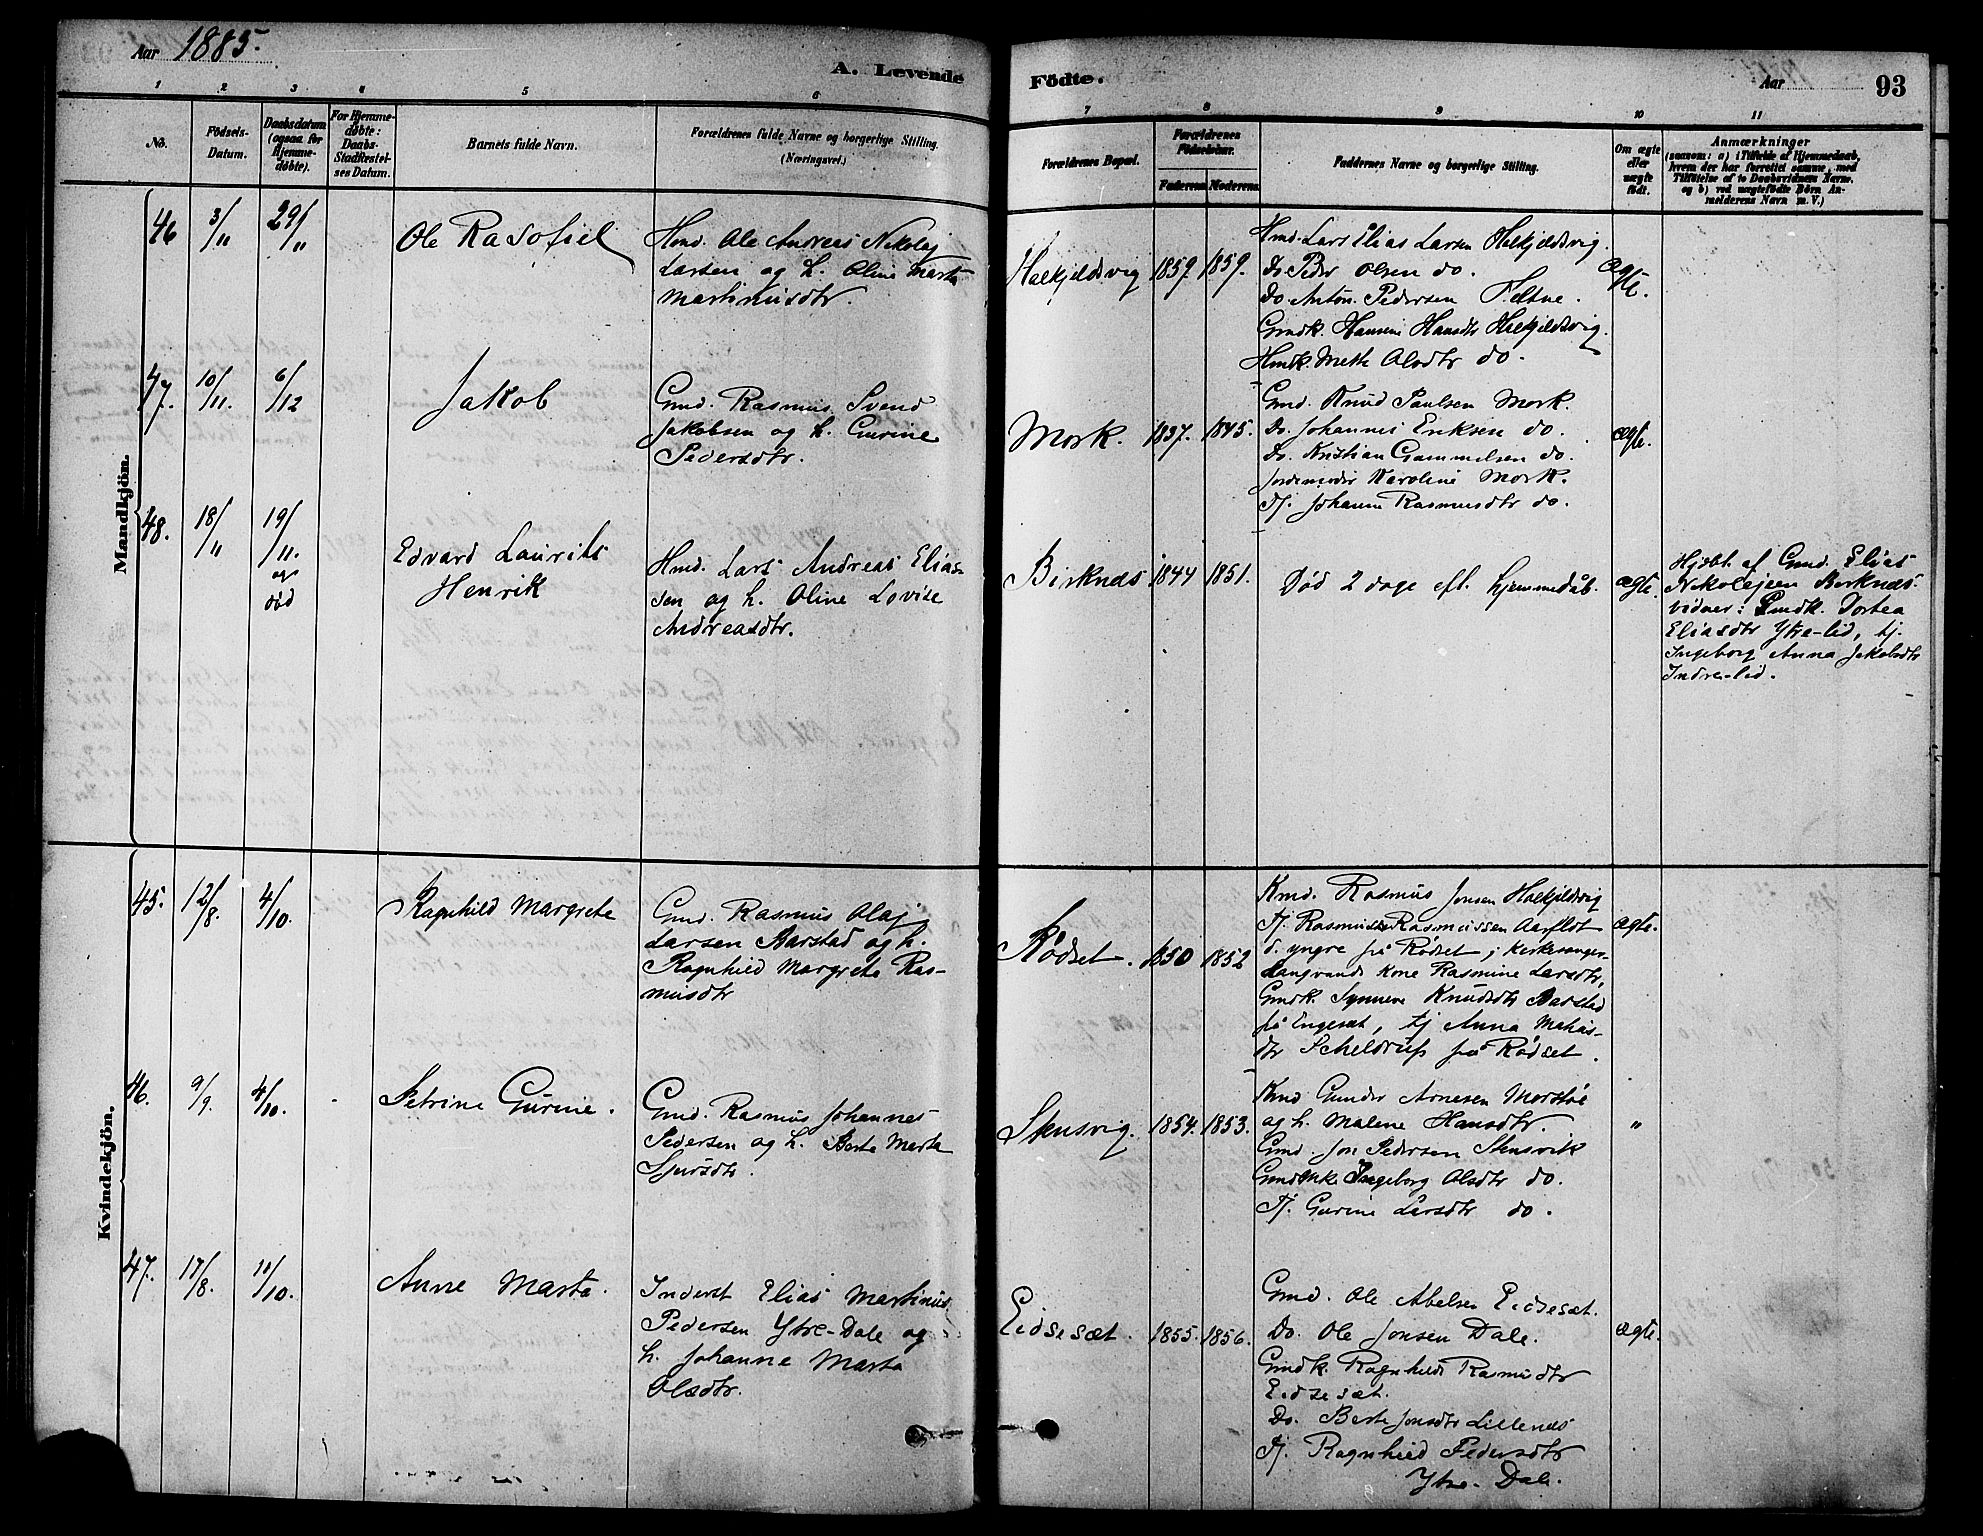 Aar 1885.
A. Levende
Födte.
Aar
93
1 2 3 4 5 6
7 8 9 10 11
No.
Födsels-
Datum.
Daabsdatum
(ogsaa for
Hjemme-
døbte).
For Hjemme-
døbte:
Daabs-
Stadfæstel-
ses Datum.
Barnets fulde Navn.
Forældrenes fulde Navne og borgerlige Stilling.
(Næringsvei.)
Forældrenes Bopæl.
Forældrenes
Födselsaar.
Faderens
Moderens
Faddernes Navne og borgerlige Stilling.
Om ægte
eller
uægte
født.
Anmærkninger
(saasom: a) i Tilfælde af Hjemmedaab,
hvem der har forrettet samme, med
Tilföielse af to Daabsvidners Navne.
og b) ved uægtefödte Börn An-
melderens Navn m. V.)
Mandkjön.
46
3/11
29/11
Ole Rasofiel
Hmd. Ole Andreas Nikolaj
Larsen og h. Oline Marta
Martinusdtr.
Halkjeldsvig
1859
1859.
Hmd. Lars Elias Larsen Halkjeldsvig.
Do. Peder Olsen do.
Do. Anton Pedersen Feltne.
Gmdk. Hansine Hansdtr Halkjeldsvig.
Hmdk. Mette Olsdtr do.
ægte.
47.
10/11.
6/12
Jakob
Gmd. Rasmus Svend
Jakobsen og h. Gurine
Pedersdtr.
Mork.
1837.
1845.
Gmd. Knud Paulsen Mork.
Do. Johannes Eriksen do.
Do. Kristian Gammelsen do.
Jordemoder Karoline Mork.
Tj. Johanne Rasmusdtr do.
ægte.
48.
18/11
19/11.
og
død
Edvard Laurits
Henrik
Hmd. Lars Andreas Elias-
sen og h. Oline Lovise
Andreasdtr.
Birknes
1844
1851.
Død 2 dage eft. hjemmedåb.
ægte.
Hjdbt. af Gmd. Elias
Nikolajsen Birknes.
vidner: Gmdk. Dortea
Eliasdtr Ytre-lid, tj.
Ingeborg Anna Jakobsdtr
Indre-lid.
Kvindekjön.
45.
12/8.
4/10.
Ragnhild Margrete
Gmd. Rasmus Olaj
Larsen Aarstad og h.
Ragnhild Margrete Ras-
musdtr
Rødset.
1850
1852
Kmd. Rasmus Jonsen Halkjeldsvig
Tj. Rasmus Rasmussen Aarflot
d. yngre på Rødset; Kirkesanger
Langvands kone Rasmine Larsdtr,
Gmdk. Synneve Knudsdtr Aarstad
på Engeset, tj Anna Mahas-
dtr Scheldrup på Rødset.
ægte.
46.
9/9.
4/10.
Petrine Gurine.
Gmd. Rasmus Johannes
Pedersen og h. Berte Marta
Sjursdtr.
Stensvig.
1854.
1853.
Kmd Gunder Arnesen Morstøl
og h. Malene Hansdtr.
Gmd. Jon Pedersen Stensvik
Gmdenke Ingeborg Olsdtr do.
Tj. Gurine Larsdtr do.
"
47.
17/8.
11/10.
Anne Marta.
Inderst Elias Martinus
Pedersen Ytre-Dale og
h. Johanne Marta
Olsdtr.
Eidsesæt.
1855.
1856.
Gmd. Ole Abelsen Eidsesæt.
Do. Ole Jonsen Dale.
Gmdk. Ragnhild Rasmusdtr
Eidsesæt.
Do. Berte Jonsdtr Lillenes
Tj. Ragnhild Pedersdtr
Ytre-Dale.
ægte.